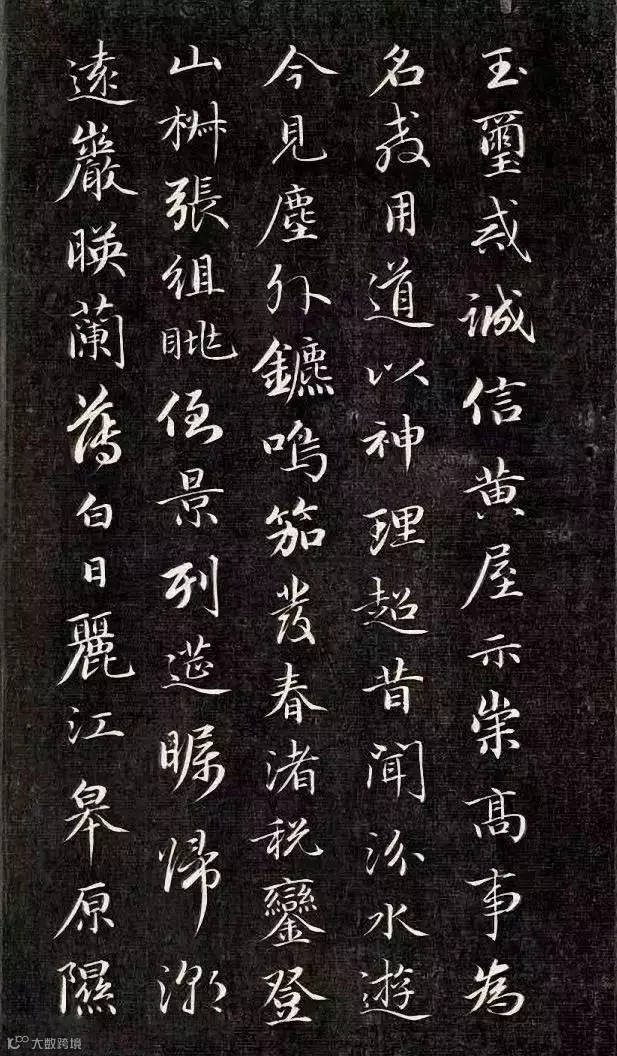 玉璽戒誠信黃屋示崇髙事為
名教用道以神理超昔聞汾水遊
今見塵外鑣鳴笳發春渚稅鑾登
山椒張組眺倒景列筵矚歸潮
遠巖暎蘭薄白日麗江皋原隰
大数跨境